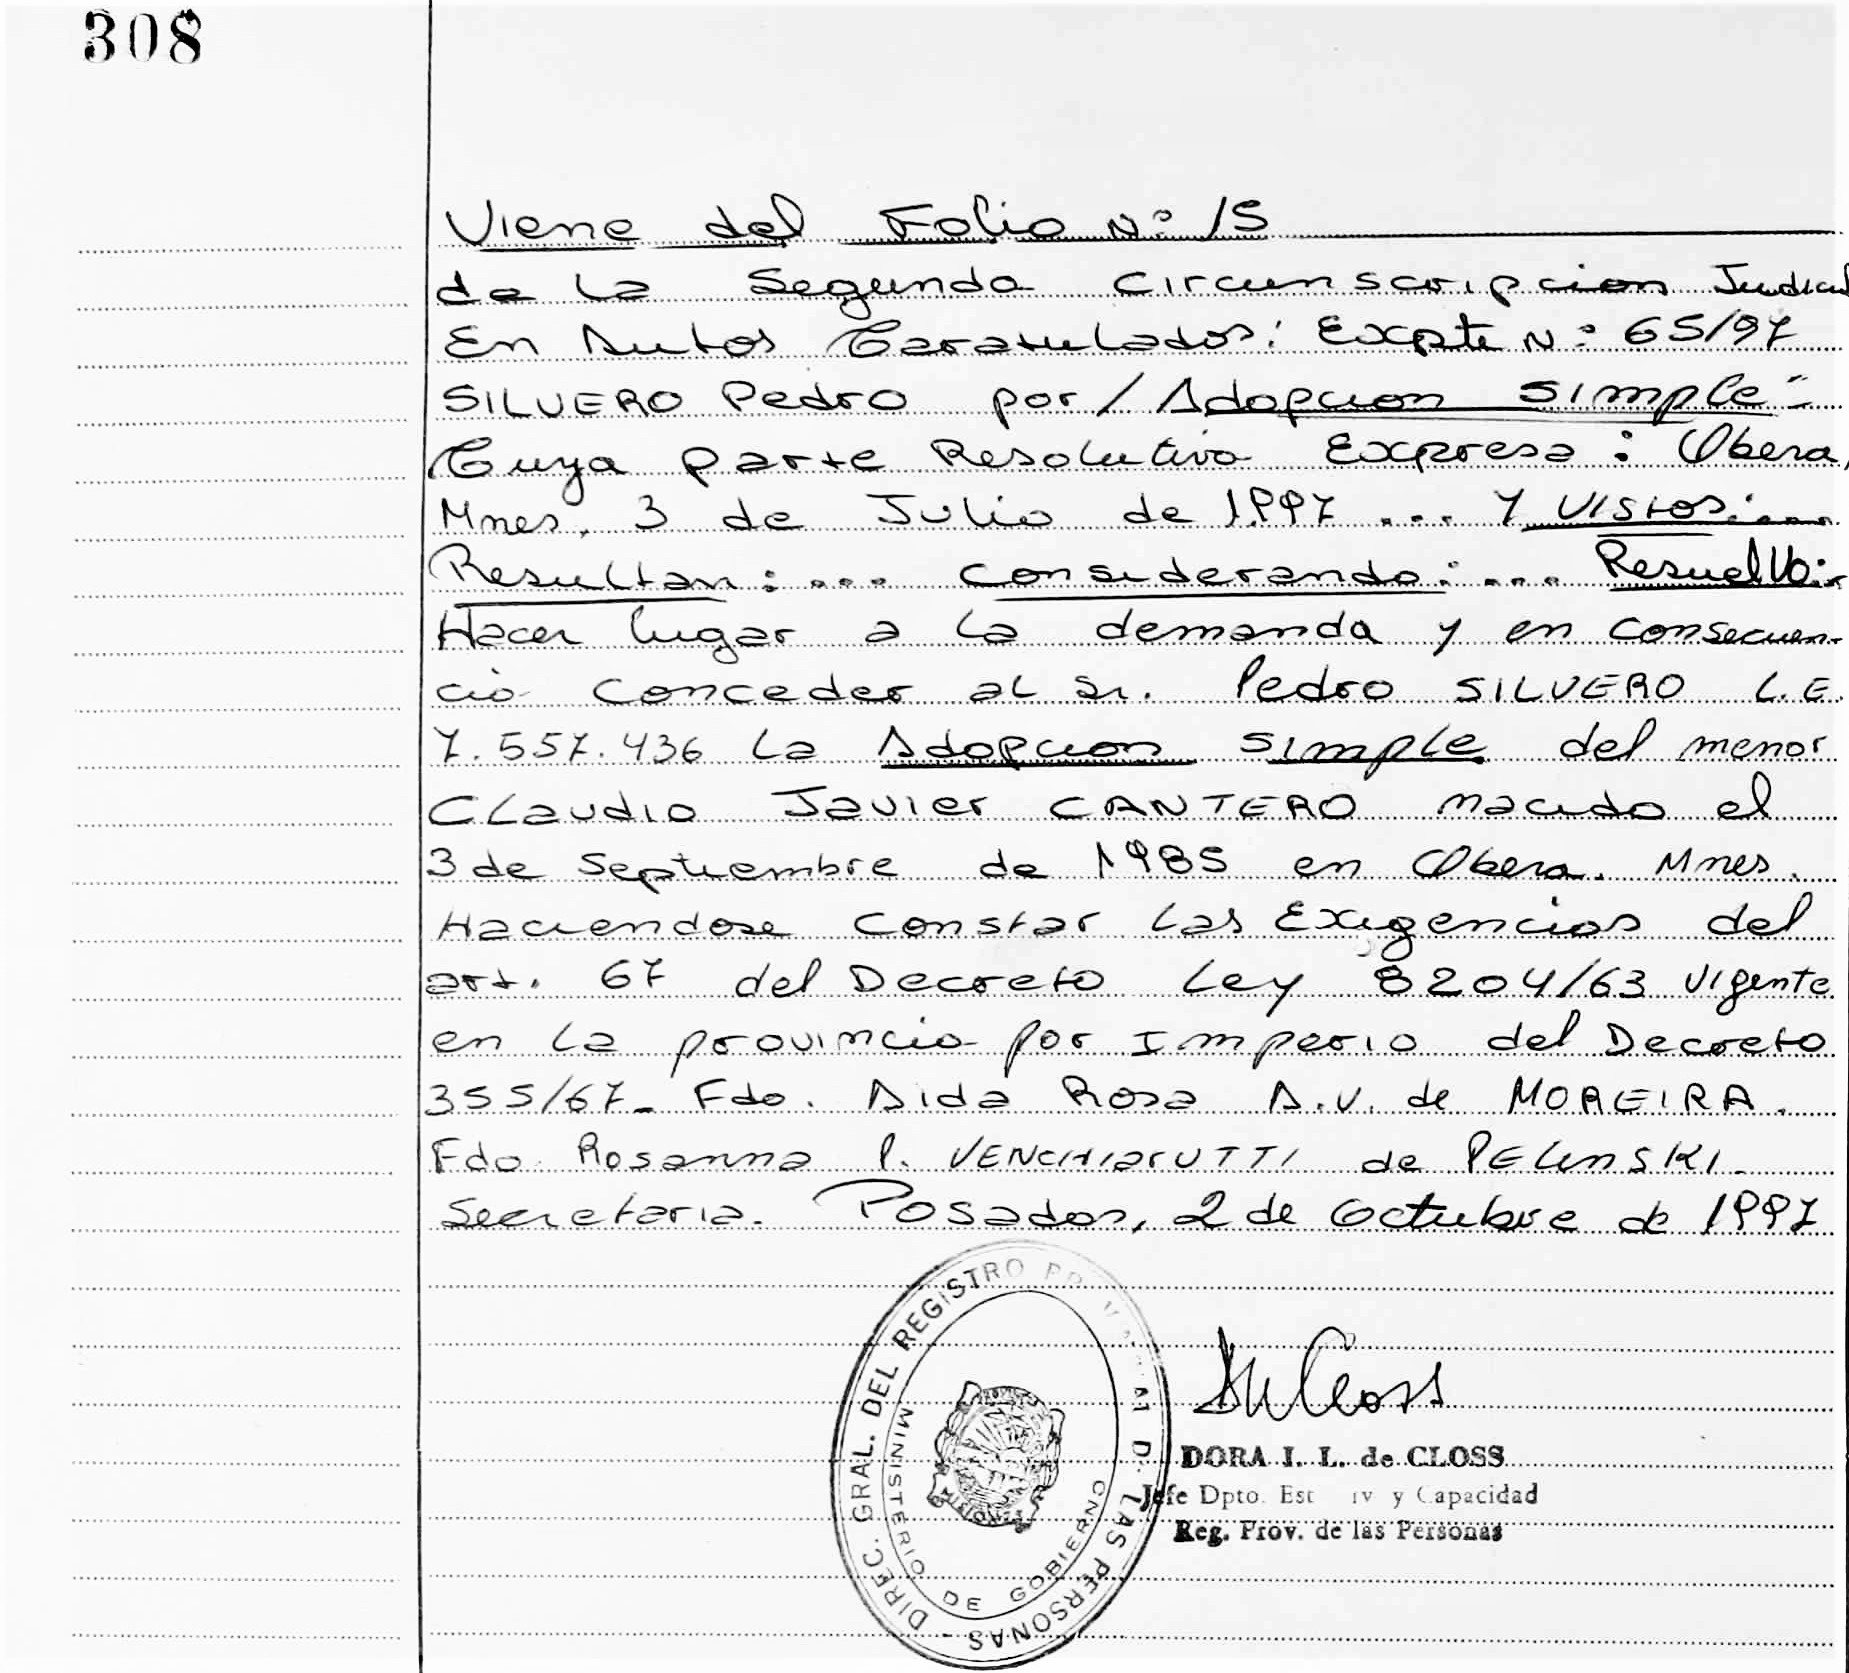 308
Viene del Folio Nº 15
de la Segunda Circunscripcion Judicial
En Autos Caratulados: Expte Nº 65/97
SILVERO Pedro por / Adopcion Simple"
Cuya parte Resolutiva Expresa: Obera,
Mnes, 3 de Julio de 1997 ... Y Vistos:...
Resultan:... Considerando:... Resuelvo:
Hacer lugar a la demanda y en consecuen-
cia conceder al Sr. Pedro SILVERO L.E.
7.557.436 la Adopcion Simple del menor
Claudio Javier CANTERO nacido el
3 de Septiembre de 1985 en Obera. Mnes.
Haciendose constar las Exigencias del
art. 67 del Decreto Ley 8204/63 vigente
en la provincia por Imperio del Decreto
355/67_ Fdo. Aida Rosa A.V. de MOREIRA.
Fdo. Rosanna P. VENCHIarUTTI de PELINSKI.
Secretaria. Posadas, 2 de Octubre de 1997
DIREC. GRAL. DEL REGISTRO LAS PERSONAS
MINISTERIO DE GOBIERNO
DORA I. L. de CLOSS
Jefe Dpto. y Capacidad
Reg. Prov. de las Personas